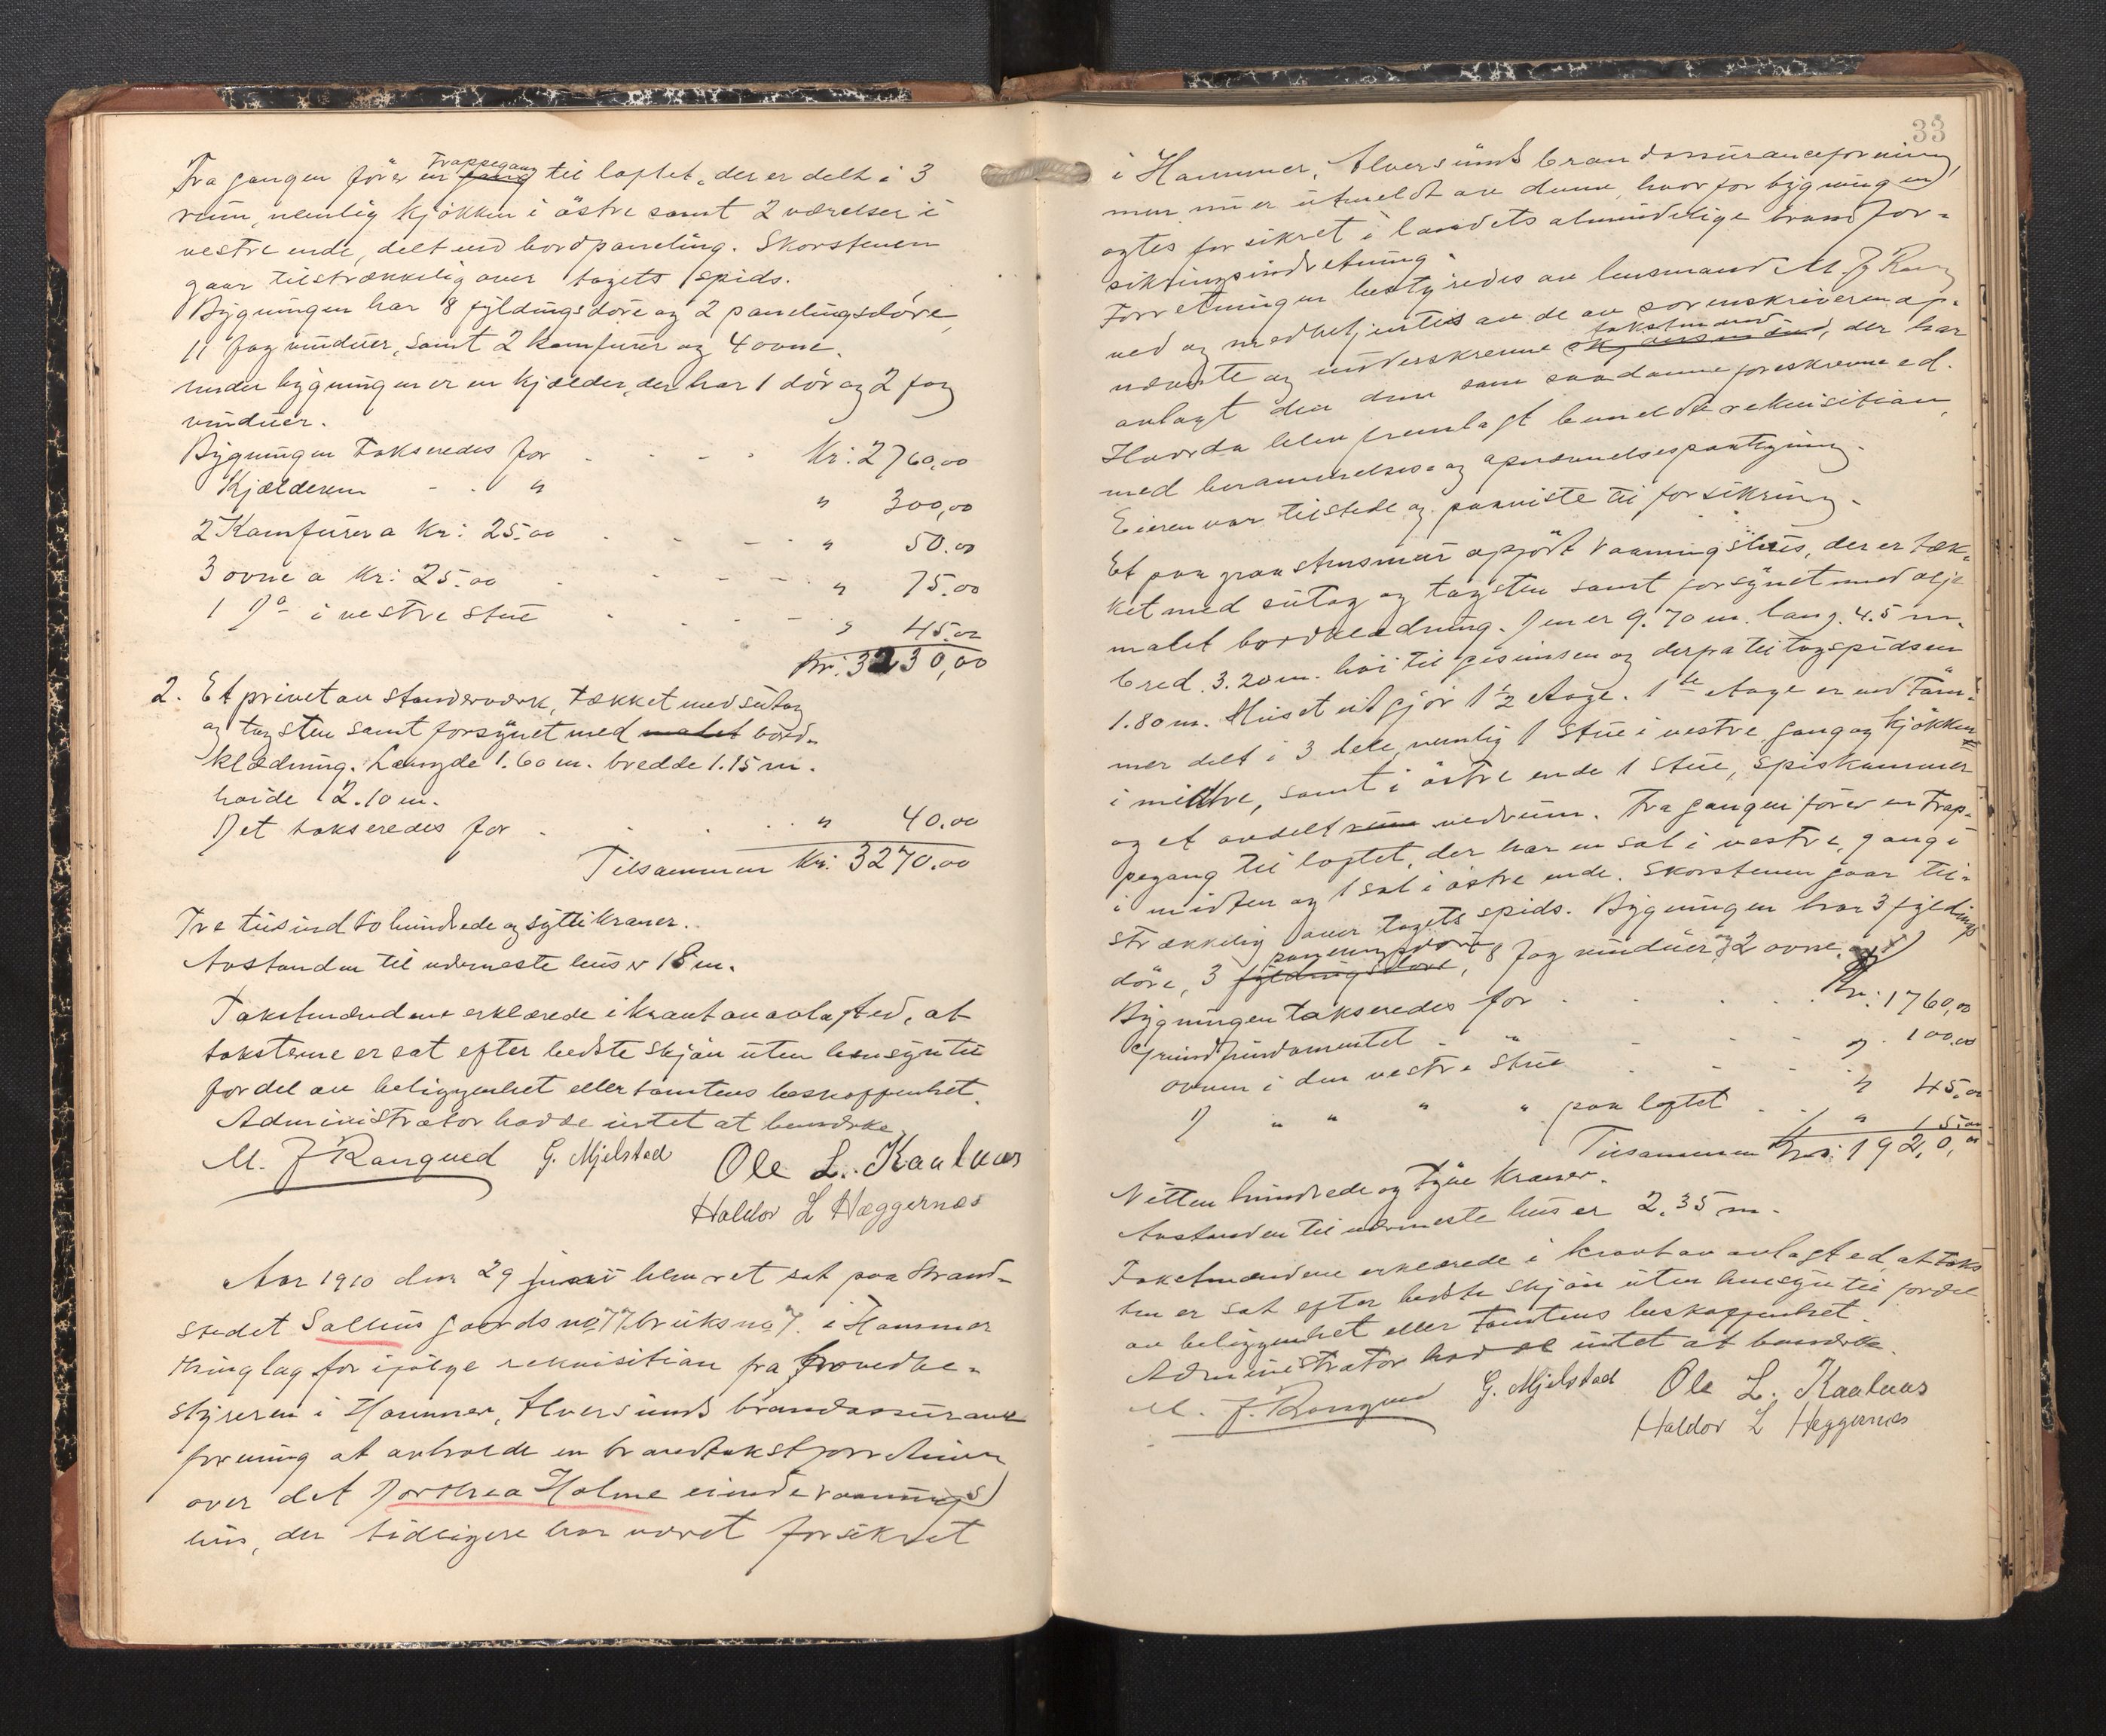 Fra gangen förer en trappegang gang til loftet, der er delt i 3
rum, nemlig kjökken i östre samt 2 værelser i
vestre ende, delt ved bordpaneling. Skorstenen
gaar tilstrækkelig over tagets spids.
Bygningen har 8 fyldingsdöre og 2 panelingsdöre,
11 fag vinduer, samt 2 komfurer og 4 ovne.
under bygningen er en kjælder, der har 1 dör og 2 fag
vinduer.
Bygningen takseredes for - - - - Kr: 2760,00
Kjælderen - - " " 300,00
2 Komfurer a Kr: 25.00 - - - " 50.00
3 ovne a Kr: 25.00 - - - " 75.00
1 Do i vestre stue - - - " 45.00
Kr: 3230,00
2. Et privet av stænderværk, tækket med sutag
og tagsten samt forsynet med malet bord-
klædning. Længde 1.60 m. bredde 1.15 m.
höide 2.10 m.
Det takseredes for . . . . " 40.00
Tilsammen Kr: 3270.00
Tre tusind to hundrede og sytti kroner.
Avstanden til nærmeste hus er 18 m.
Takstmændene erklærede i kraft av avlagt ed, at
taksterne er sat efter bedste skjön uten hensyn til
fordel av beliggenhet eller tomtens beskaffenhet.
Administrator hadde intet at bemærke.
M. J Rongved G. Mjelstad Ole L. Kaalaas
Haldor L Hæggernes
Aar 1910 den 29 juni blev ret sat paa Strand-
stedet Salhus gaards no 77 bruks no 7. i Hammer
thinglag for ifölge rekvisition fra hovedbe-
styreren i Hammer, Alversunds brandassurance
forening at avholde en brandtakstforretning
over det Dorthea Holme eiende vaanings
hus, der tidligere har været forsikret
33
i Hammer, Alversunds brandassuranceforening,
men nu er utmeldt av denne, hvorfor bygningen
agtes forsikret i landets almindelige brandfor-
sikringsindretning.
Forretningen bestyredes av lensmand M. J Rong
ved og medbetjentes av de av sorenskriveren op-
nævnte og underskrevne takstmænd, der har
avlagt den dem som saadanne foreskrevne ed.
Hvorda blev fremlagt bemeldte rekvisition,
med berammelses- og opnævnelsespaategning.
Eieren var tilstede og paaviste til forsikring.
Et paa graastensmur opfört vaaningshus, der er tæk-
ket med sutag og tagsten samt forsynet med olje
malet bordklædning. Den er 9.70 m. lang. 4.5 m.
bred. 3.20 m. höi til gesimsen og derfra til tagspidsen
1.80 m. Huset utgjör 1 1/2 etage. 1ste etage er ved töm-
mer delt i 3 dele, nemlig 1 stue i vestre, gang og kjökken
i midtre, samt i östre ende 1 stue, spiskammer
og et avdelt rum vedrum. Fra gangen förer en trap-
pegang til loftet, der har en sal i vestre, gang i
i midten og 1 sal i östre ende. Skorstenen gaar til-
strækkelig over tagets spids. Bygningen har 3 fyldings
döre, 3 panelingsdöre fyldingsdöre, 8 fag vinduer og 2 ovne.
Bygningen takseredes for . . . . Kr: 1760,00
Grundfundamentet - " - - - " 100.00
ovnen i den vestre stue - - - " 45,00
D " " " " paa loftet . . " 15.00
Tilsammen Kr: 1920,00
Nitten hundrede og tyve kroner.
Avstanden til nærmeste hus er 2.35 m.
Takstmændene erklærede i kraft av avlagt ed, at taks
ten er sat efter bedste skjön uten hensyn til fordel
av beliggenhet eller tomtens beskaffenhet.
Administrator hadde intet at bemærke.
M. J. Rongved G. Mjelstad Ole L. Kaalaas
Haldor L Heggernes